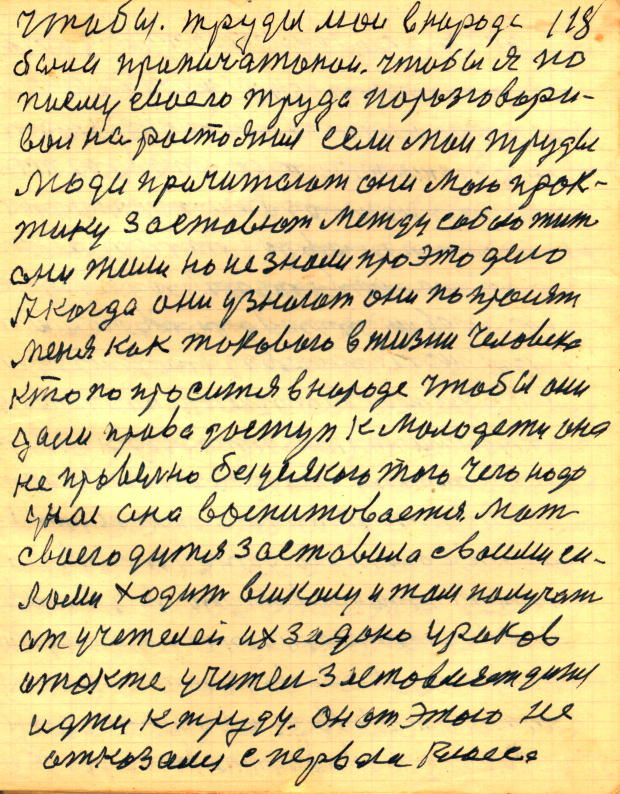 чтобы. труды мои в народе 118
были пропичатонои. чтобы я по
писму своего труда поразговори-
вои на ростояния если мои труды
люди прочитают они мою прок-
тику заставют между собою жит
они жили но не знали про это дело
А когда они узнают они попросят
меня как токового в жизни человека
кто попросится в народе чтобы они
дали права доступ к молодежи она
не провелно без усякого того чего надо
она воспитовается. мат
своего дитя заставила своими си-
лами ходит в школу и там получат
от учетелей их задоно уроков
а также учител заставляет дитя
идти к труду. он от этого не
отказалса с первога класса